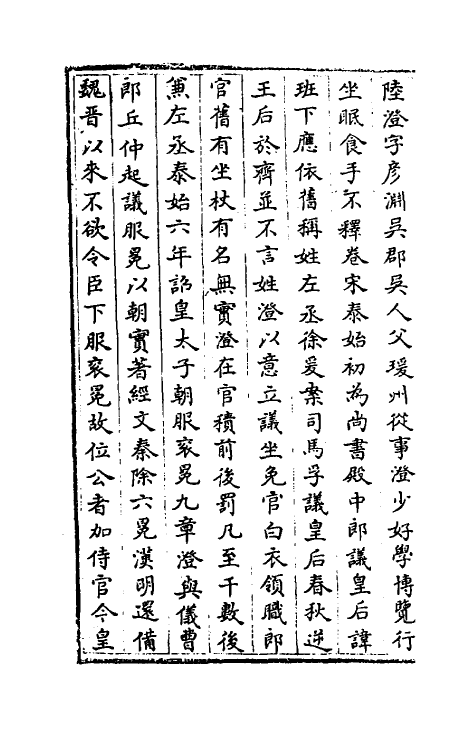 陸澄字彦淵吳郡吳人父瑗州從事澄少好學博覽行
坐眠食手不釋卷宋泰始初為尚書殿中郎議皇后諱
班下應依舊稱姓左丞徐爰案司馬孚議皇后春秋逆
王后於齊並不言姓澄以意立議坐免官白衣領職郎
官舊有坐杖有名無實澄在官積前後罰凡至千數後
兼左丞泰始六年詔皇太子朝服衮冕九章澄與儀曹
郎丘仲起議服冕以朝實著經文秦除六冕漢明還備
魏晉以來不欲令臣下服衮冕故位公者加侍官今皇